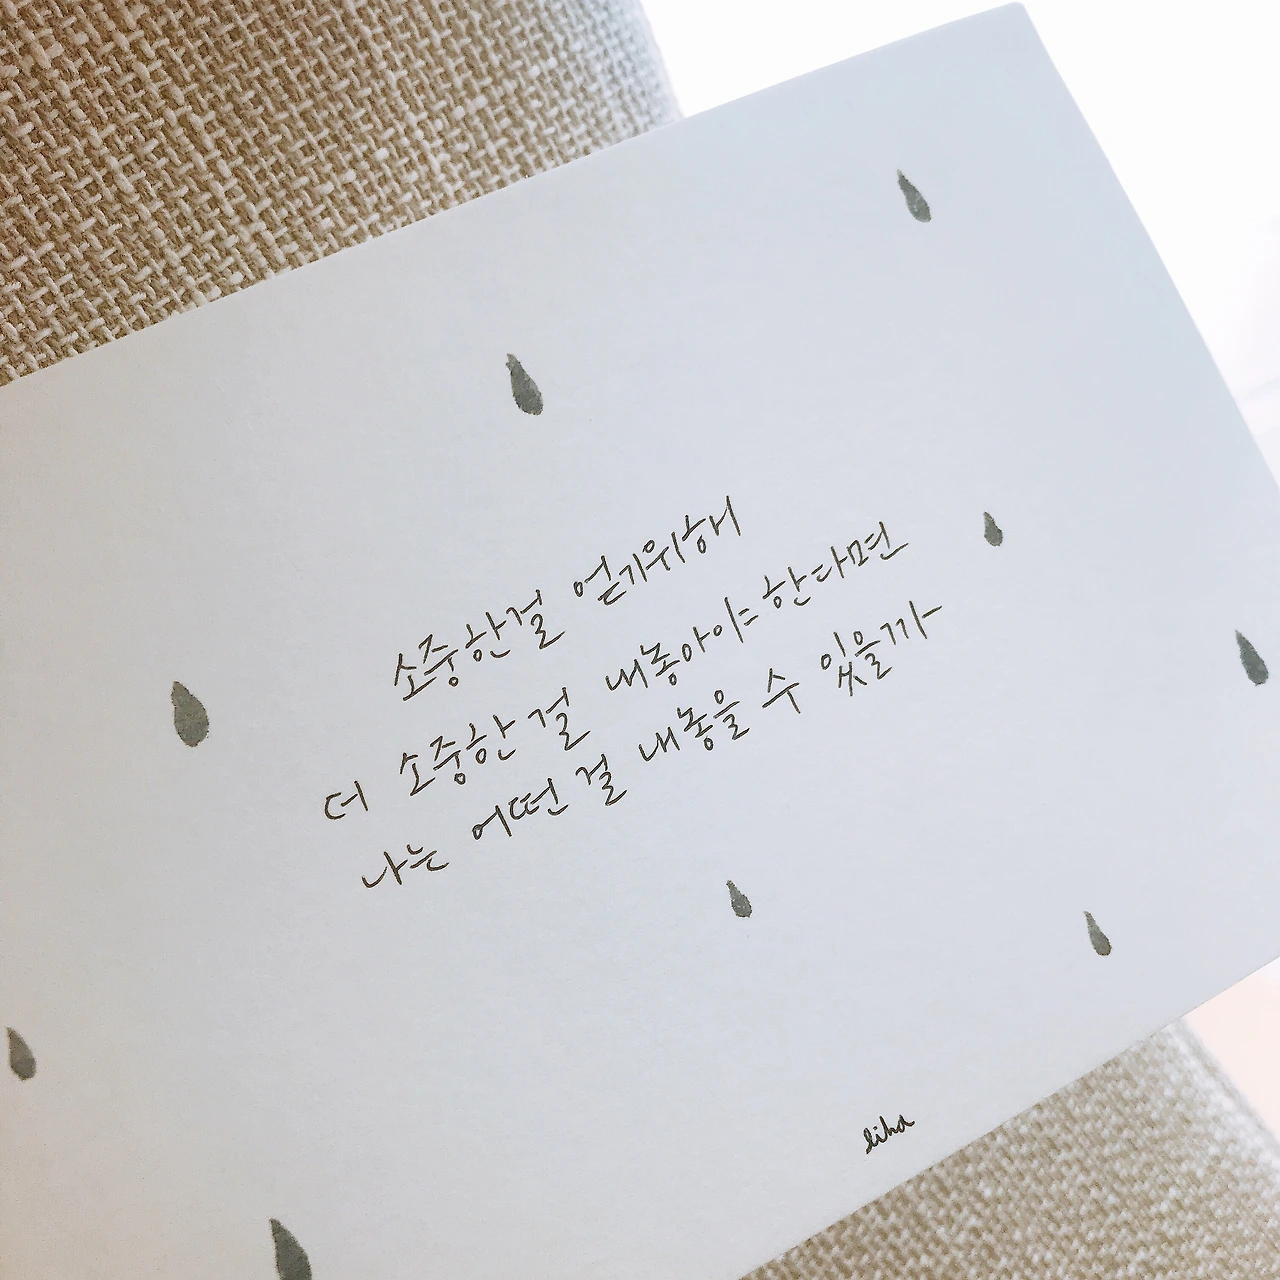 소중한걸 얻기위해
더 소중한 걸 내놓아야 한다면
나는 어떤 걸 내놓을 수 있을까
liha